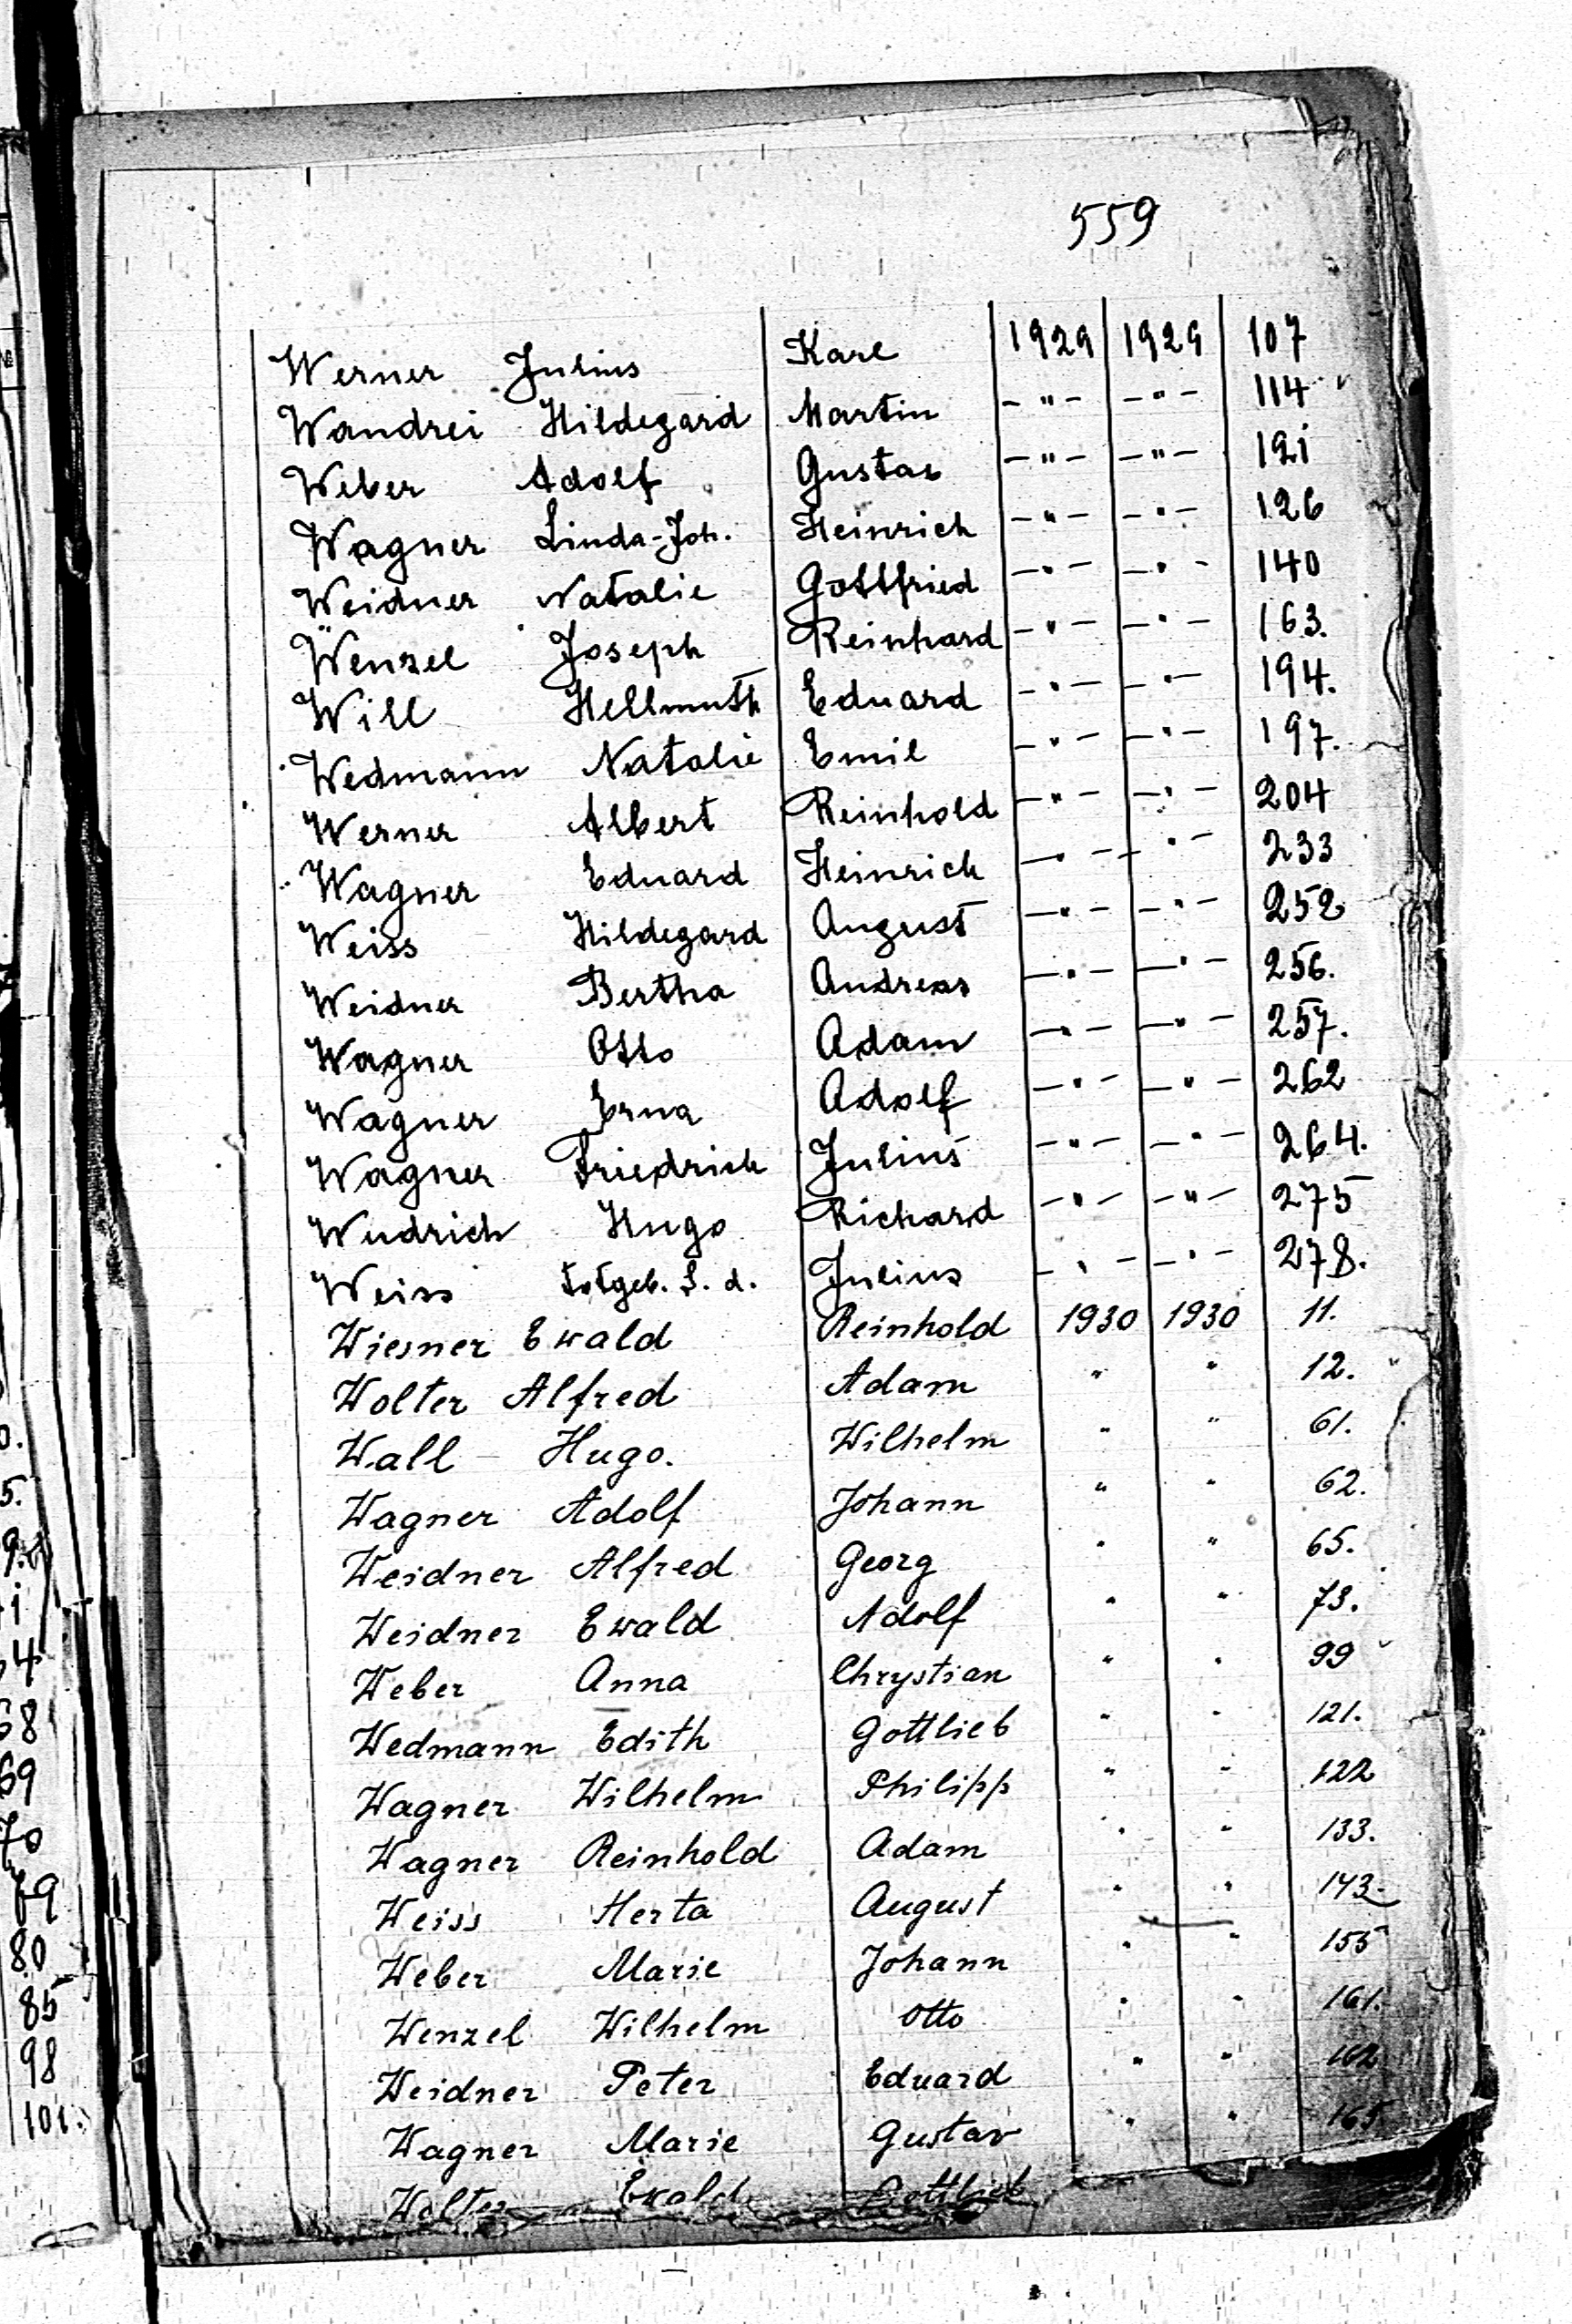 559
Werner Julius Karl 1929 1929 107
Wandrei Hildegard Martin -"- -"- 114
Weber Adolf Gustav -"- -"- 121
Wagner Linda-Joh. Heinrich -"- -"- 126
Weidner Natalie Gottfried -"- -"- 140
Wenzel Joseph Reinhard -"- -"- 163.
Will Hellmuth Eduard -"- -"- 194.
Wedmann Natalie Emil -"- -"- 197.
Werner Albert Reinhold -"- -"- 204
Wagner Eduard Heinrich -"- -"- 233
Weiss Hildegard August -"- -"- 252
Weidner Bertha Andreas -"- -"- 256.
Wagner Otto Adam -"- -"- 257.
Wagner Erna Adolf -"- -"- 262
Wagner Friedrich Julius -"- -"- 264.
Wudrich Hugo Richard -"- -"- 275
Weiss Totgeb. S. d. Julius -"- -"- 278.
Wiesner Ewald Reinhold 1930 1930 11.
Wolter Alfred Adam " " 12.
Wall - Hugo. Wilhelm " " 61.
Wagner Adolf Johann " " 62.
Weidner Alfred Georg " " 65.
Weidner Ewald Adolf " " 73.
Weber Anna Chrystian " " 99
Wedmann Edith Gottlieb " " 121.
Wagner Wilhelm Philipp " " 122
Wagner Reinhold Adam " " 133.
Weiss Herta August " " 143.
Weber Marie Johann " " 155
Wenzel Wilhelm Otto " " 161.
Weidner Peter Eduard " " 162
Wagner Marie Gustav " " 165
Wolter Ewald Gottlieb